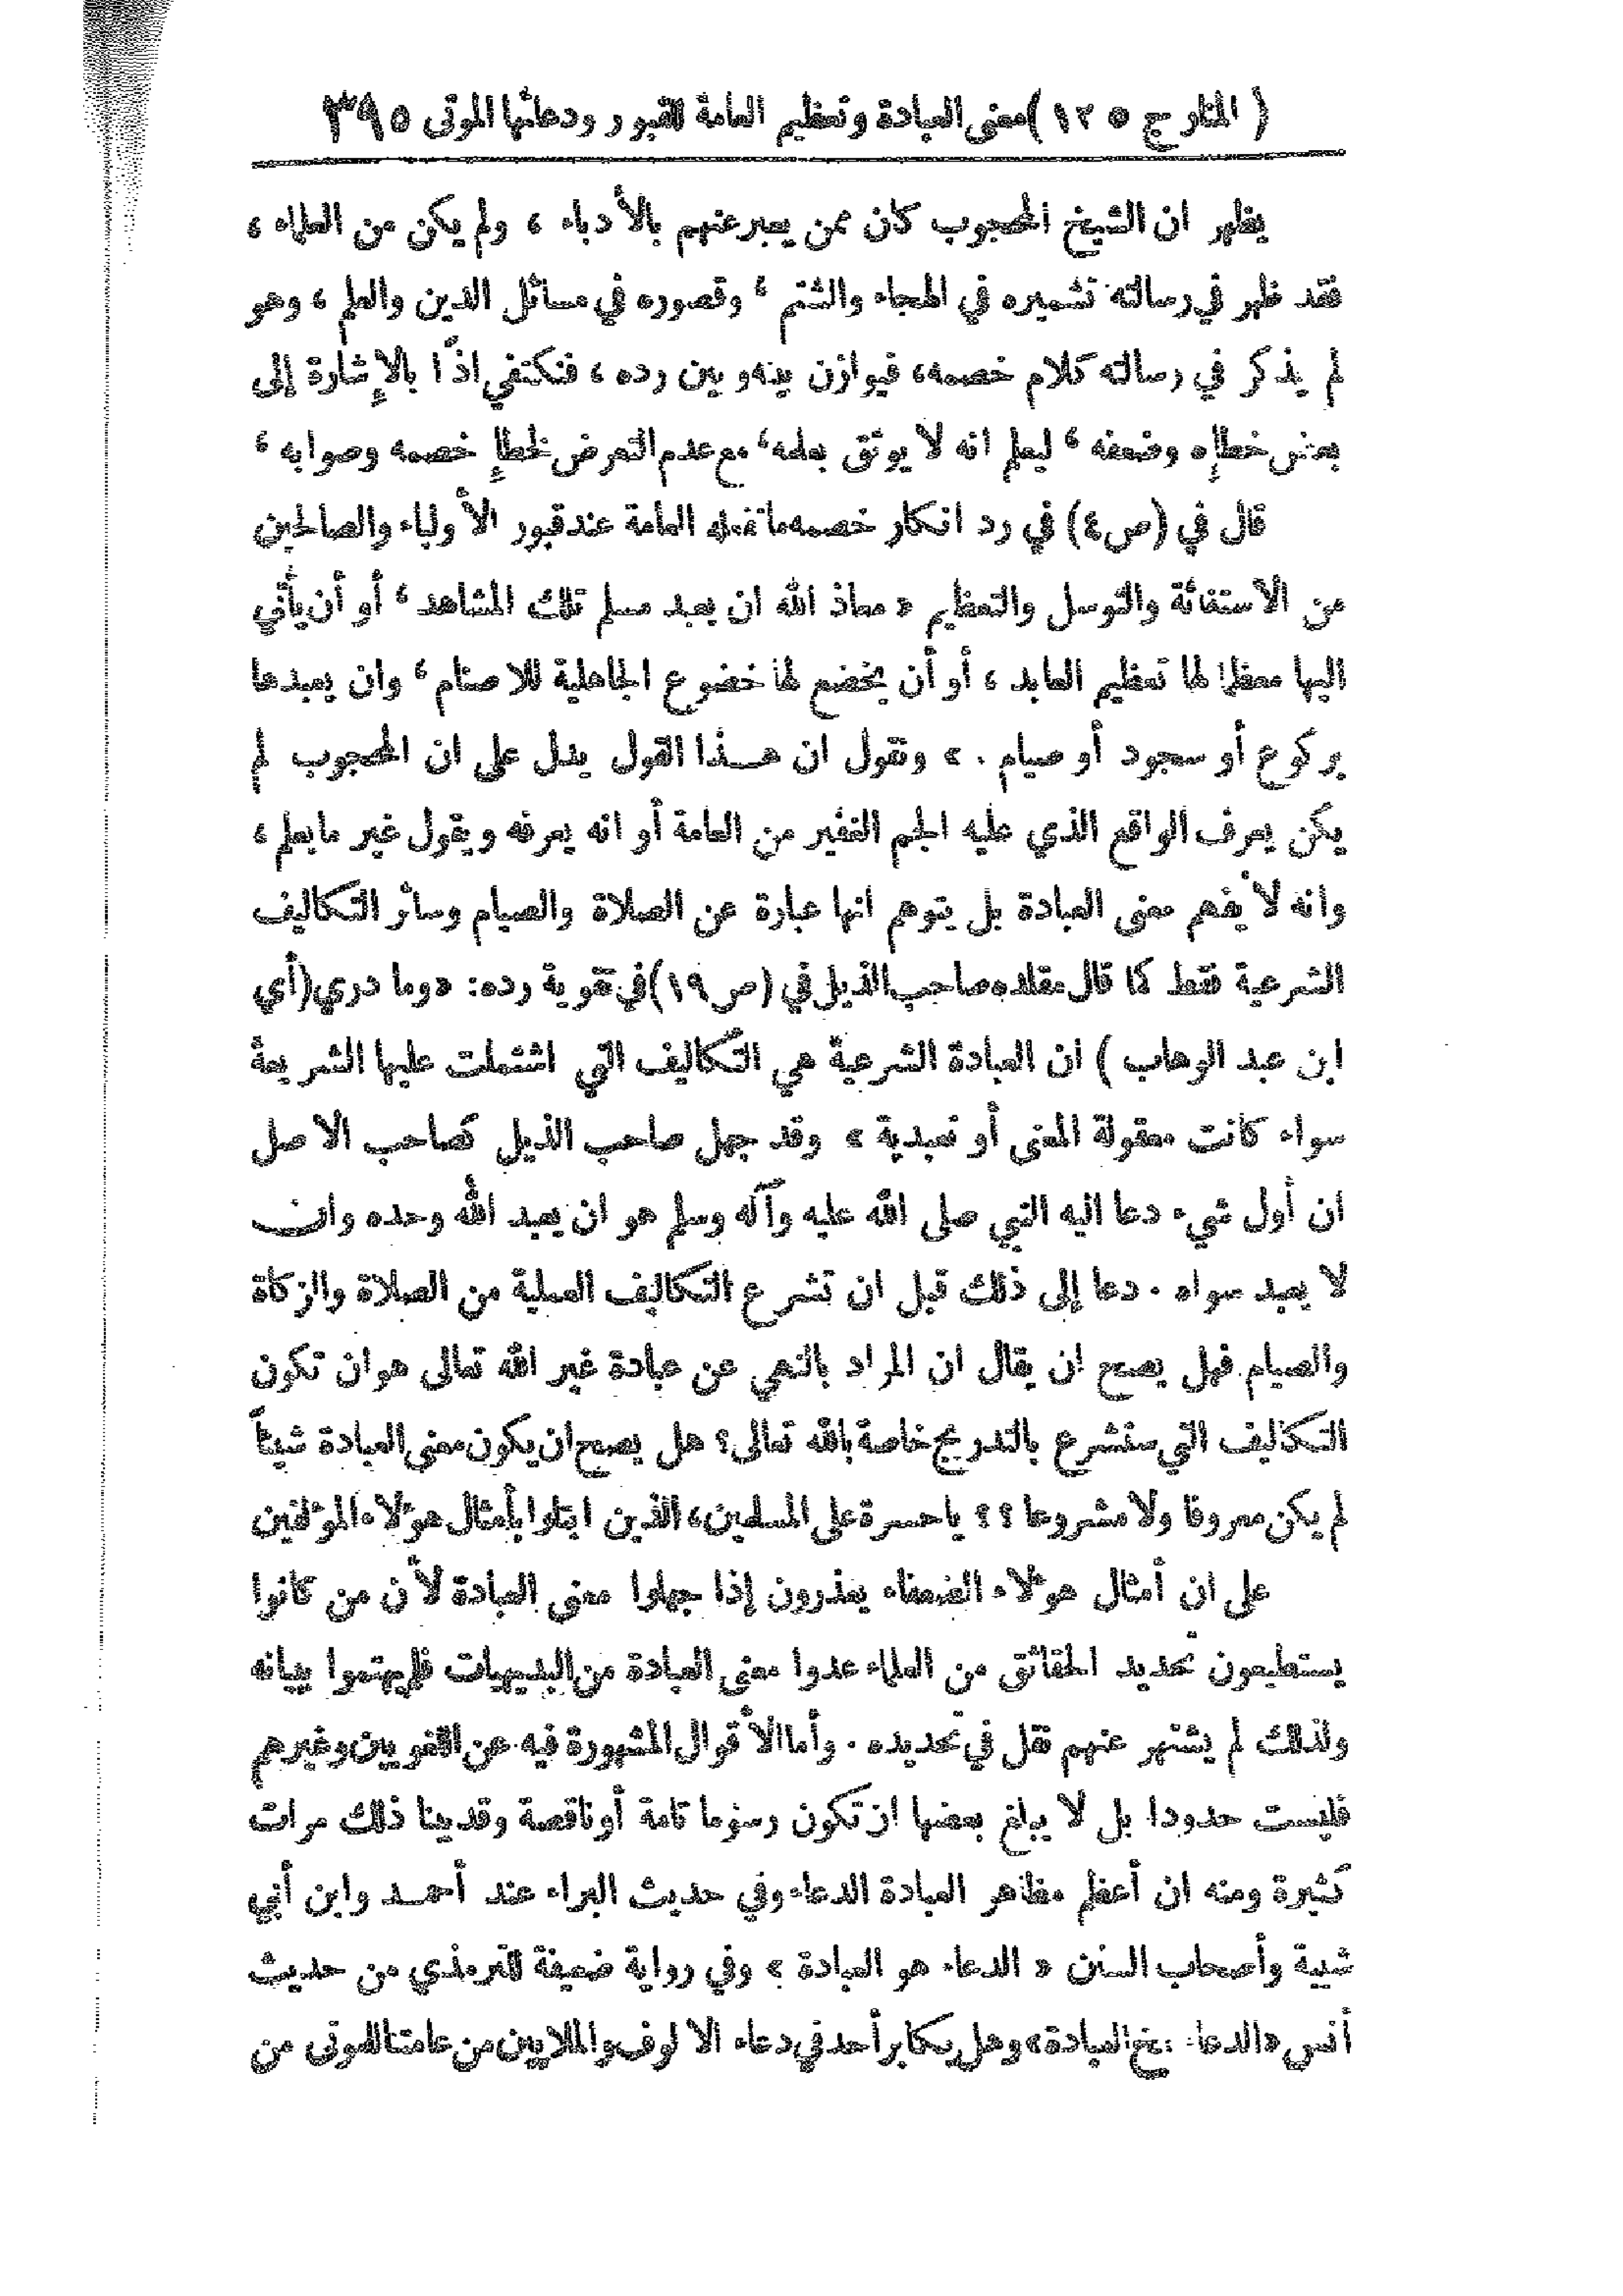 ( المنار ج ٥ م ١٢ ) معنى العبادة وتعظيم العامة للقبور ودعائها الموتى ٣٩٥
يظهر ان الشيخ المحجوب كان ممن يعبر عنهم بالأدباء ، ولم يكن من العلماء ،
فقد ظهر في رسالته تشميره في الهجاء والشتم ، وقصوره في مسائل الدين والعلم ، وهو
لم يذكر في رسالته كلام خصمه، فيوازن بينه وبين رده ، فنكتفي اذًا بالإشارة إلى
بعض خطإه وضعفه ، ليعلم انه لا يوثق بعلمه، مع عدم التعرض لخطإ خصمه وصوابه ،
قال في (ص٤) في رد انكار خصمه ما تفعله العامة عند قبور الأولياء والصالحين
من الاستغاثة والتوسل والتعظيم « معاذ الله ان يعبد مسلم تلك المشاهد ، أو أن يأتي
اليها معظما لها تعظيم العابد ، أو أن يخضع لها خضوع الجاهلية للاصنام ، وان يعبدها
بركوع أو سجود أو صيام . » ونقول ان هـذا القول يدل على ان المحجوب لم
يكن يعرف الواقع الذي عليه الجم الغفير من العامة أو انه يعرفه ويقول غير ما يعلم ،
وانه لا يفهم معنى العبادة بل يتوهم انها عبارة عن الصلاة والصيام وسائر التكاليف
الشرعية فقط كما قال مقلده صاحب الذيل في (ص١٩) في تقوية رده: «وما درى (أي
ابن عبد الوهاب ) ان العبادة الشرعية هي التكاليف التي اشتملت عليها الشريعة
سواء كانت معقولة المعنى أو تعبدية » وقد جهل صاحب الذيل كصاحب الاصل
ان أول شيء دعا اليه النبي صلى الله عليه وآله وسلم هو ان يعبد الله وحده وان
لا يعبد سواه . دعا إلى ذلك قبل ان تشرع التكاليف العملية من الصلاة والزكاة
والصيام فهل يصح ان يقال ان المراد بالنهي عن عبادة غير الله تعالى هو ان تكون
التكاليف التي ستشرع بالتدريج خاصة بالله تعالى؟ هل يصح ان يكون معنى العبادة شيئاً
لم يكن معروفا ولا مشروعا ؟؟ يا حسرة على المسلمين، الذين ابتلوا بأمثال هؤلاء المؤلفين
على ان أمثال هؤلاء الضعفاء يعذرون إذا جهلوا معنى العبادة لأن من كانوا
يستطيعون تحديد الحقائق من العلماء عدوا معنى العبادة من البديهيات فلم يهتموا ببيانه
ولذلك لم يشتهر عنهم نقل في تحديده . وأما الأقوال المشهورة فيه عن اللغويين وغيرهم
فليست حدودا بل لا يبلغ بعضها ان تكون رسوما تامة أو ناقصة وقد بينا ذلك مرات
كثيرة ومنه ان أعظم مظاهر العبادة الدعاء وفي حديث البراء عند أحمـد وابن أبي
شيبة وأصحاب السنن « الدعاء هو العبادة » وفي رواية ضعيفة للترمذي من حديث
أنس «الدعاء مخ العبادة» وهل يكابر أحد في دعاء الالوف والملايين من عامتنا للموتى من